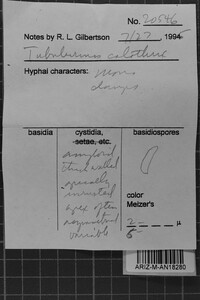 No. 20546
Notes by R. L. Gilbertson 7/27, 1994
Tubulicrinis calothrix
Hyphal characters: mono
clamps
basidia cystidia, setae, etc. basidiospores
amyloid
thick walled
apically
encrusted
apex often
variable
color
Melzer's
μ
ARIZ-M-AN18280